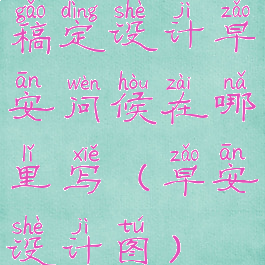 gǎo dìng shè jì zǎo
稿定设计早
ān wèn hòu zài nǎ
安问候在哪
lǐ xiě zǎo ān
里写(早安
shè jì tú
设计图)